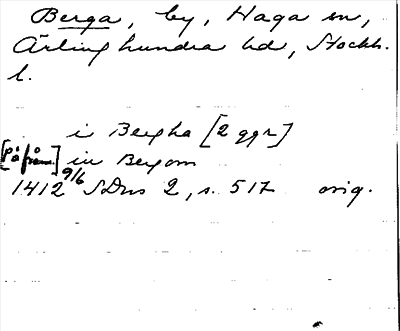 Berga, by, Haga sn,
Ärlinghundra hd, Stockh.
l.
i Bergha [2 ggr]
[på från] in Bergom
1412 9/6 SDns 2, s. 517 orig.